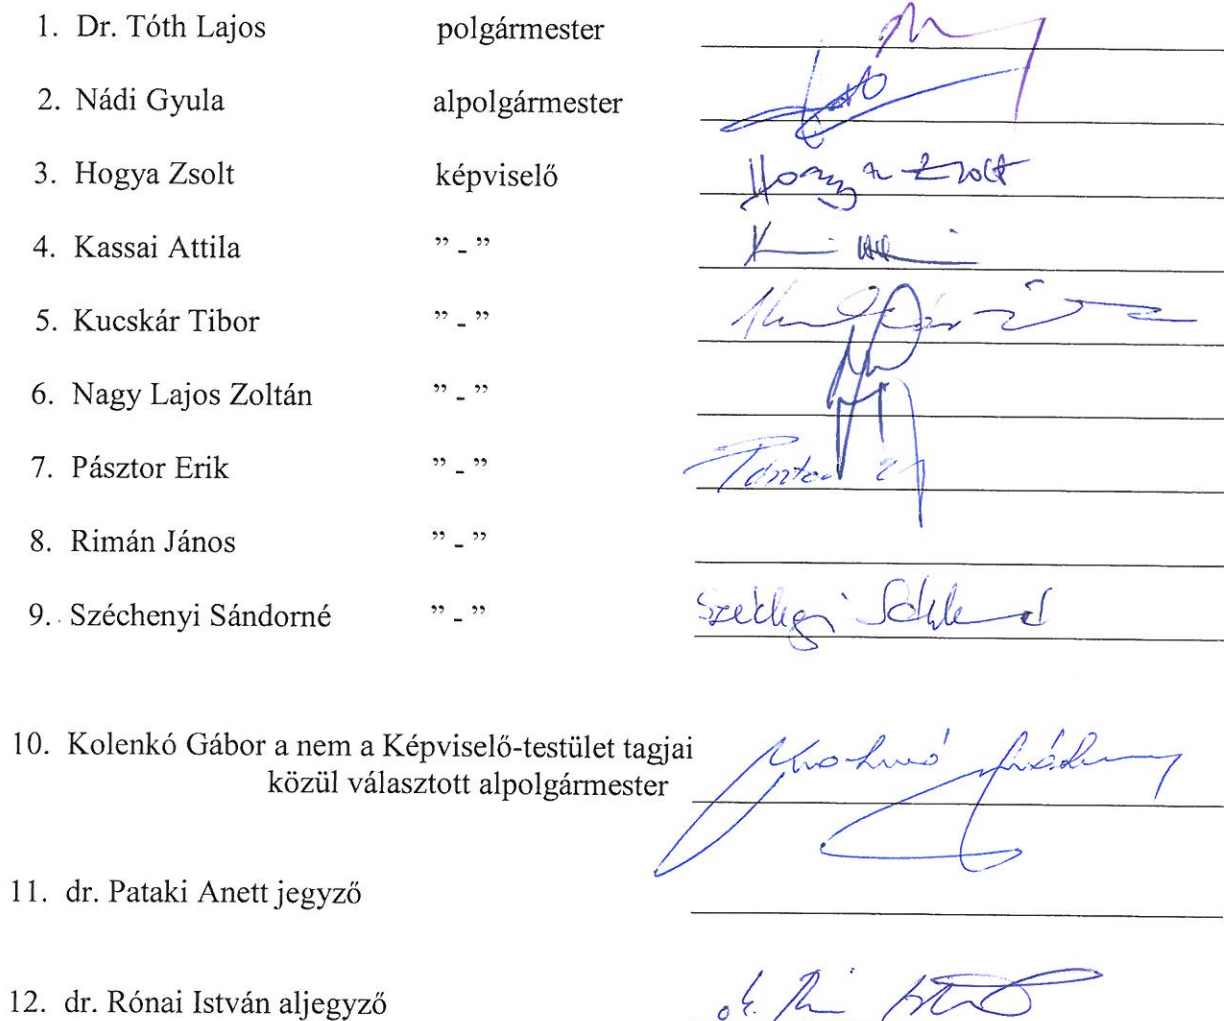 1. Dr. Tóth Lajos polgármester
2. Nádi Gyula alpolgármester
3. Hogya Zsolt képviselő Hogya Zsolt
4. Kassai Attila ” - ”
5. Kucskár Tibor ” - ”
6. Nagy Lajos Zoltán ” - ”
7. Pásztor Erik ” - ”
8. Rimán János ” - ”
9. Széchenyi Sándorné ” - ”
10. Kolenkó Gábor a nem a Képviselő-testület tagjai
közül választott alpolgármester
11. dr. Pataki Anett jegyző
12. dr. Rónai István aljegyző